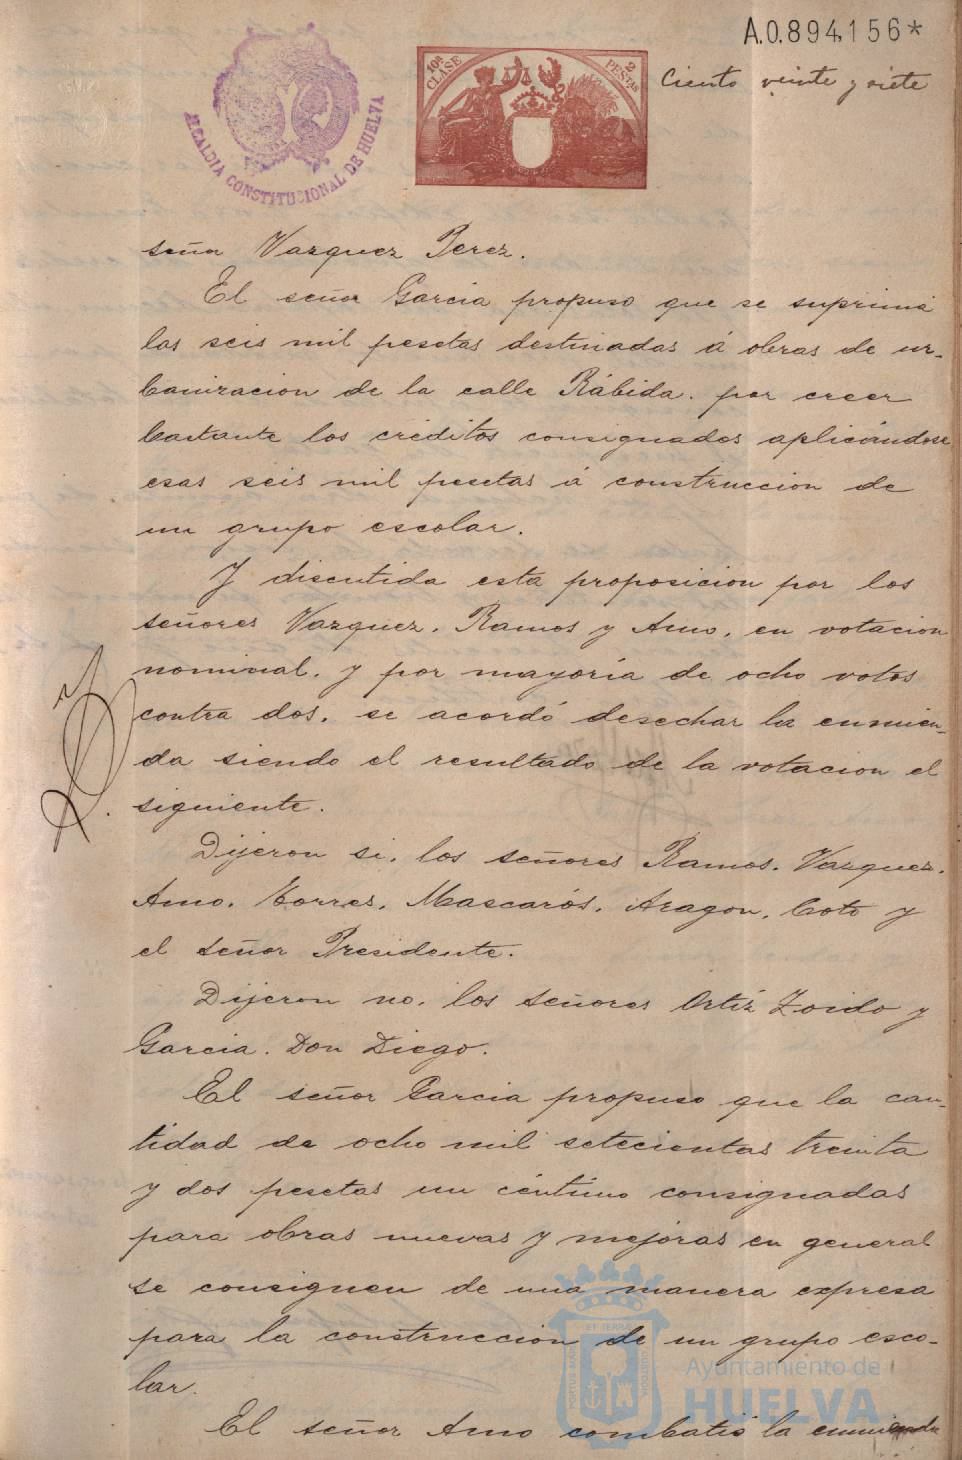 A.0.894,156*
Ciento veinte y siete
10ª CLASE
2 PESTAS
ALCALDIA CONSTITUCIONAL DE HUELVA
señor Vazquez Perez.
El señor Garcia propuso que se suprima
las seis mil pesetas destinadas á obras de ur-
banizacion de la calle Rábida. por creer
bastante los créditos consignados aplicándose
esas seis mil pesetas á construccion de
un grupo escolar.
Y discutida esta proposicion por los
señores Vazquez, Ramos y Amo, en votacion
nominal, y por mayoría de ocho votos
contra dos, se acordó desechar la enmien-
da siendo el resultado de la votacion el
siguiente.
Dijeron si, los señores Ramos, Vazquez,
Amo, Torres, Mascarós, Aragon, Coto y
el señor Presidente.
Dijeron no, los señores Ortíz Zoido y
Garcia, Don Diego.
El señor Garcia propuso que la can-
tidad de ocho mil setecientas treinta
y dos pesetas un céntimo consignadas
para obras nuevas y mejoras en general
se consignen de una manera expresa
para la construccion de un grupo esco-
lar.
El señor Amo combatió la enmienda
Ayuntamiento de
HUELVA